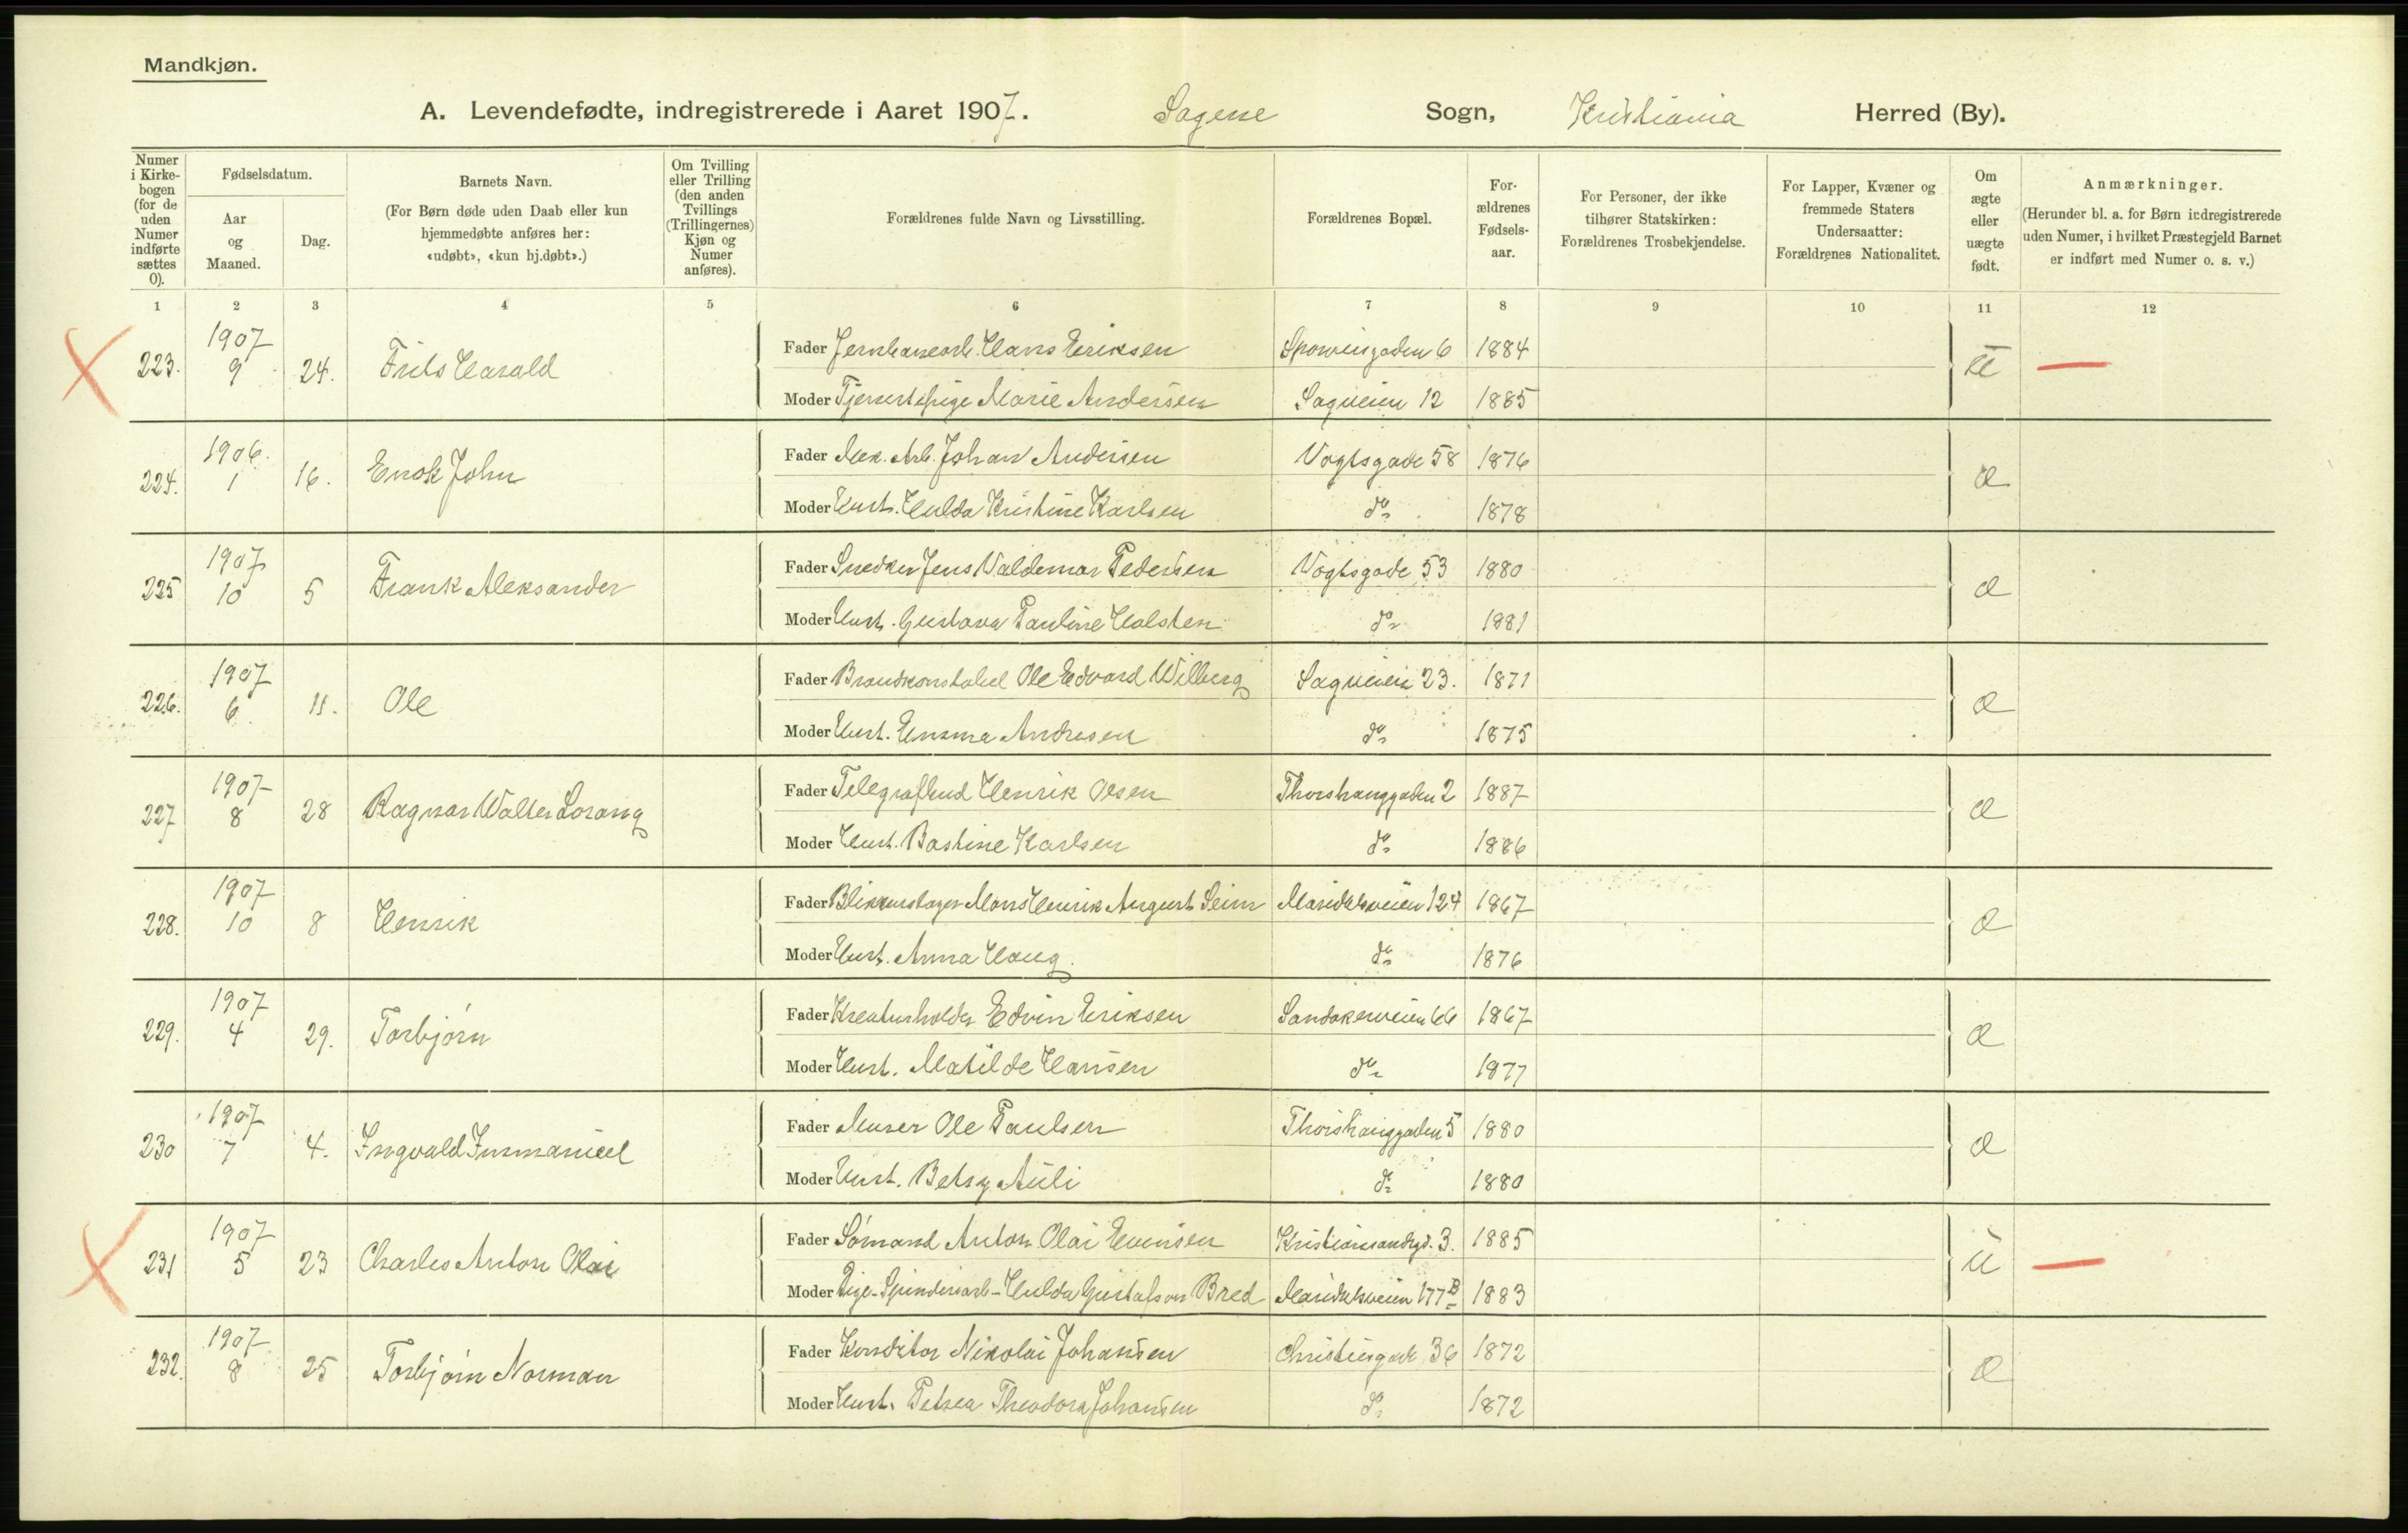 Mandkjøn.
A. Levendefødte, indregistrerede i Aaret 1907. Sagene Sogn, Kristiania Herred (By).
Numer i Kirkebogen (for de uden Numer indførte sættes 0).
Fødselsdatum.
Aar og Maaned.
Dag.
Barnets Navn.
(For Børn døde uden Daab eller kun hjemmedøbte anføres her: «udøbt», «kun hj.døbt».)
Om Tvilling eller Trilling (den anden Tvillings (Trillingernes) Kjøn og Numer anføres).
Forældrenes fulde Navn og Livsstilling.
Forældrenes Bopæl.
Forældrenes Fødselsaar.
For Personer, der ikke tilhører Statskirken: Forældrenes Trosbekjendelse.
For Lapper, Kvæner og fremmede Staters Undersaatter: Forældrenes Nationalitet.
Om ægte eller uægte født.
Anmærkninger.
(Herunder bl. a. for Børn indregistrerede uden Numer, i hvilket Præstegjeld Barnet er indført med Numer o. s. v.)
1 2 3 4 5 6 7 8 9 10 11 12
223. 1907 9 24. Frits Harald
Fader Jernbanearb. Hans Eriksen 6 1884
Moder Tjenestepige Marie Andersen Sagveien 12 1885
224. 1906. 1 16. Enok John æ
Fader Mek. Arb. Johan Andersen Vogtsgade 58 1876
Moder Hust. Hulda Kristine Karlsen do 1878
225 1907 10 5 Frank Aleksander æ
Fader Snedker Jens Valdemar Pedersen Vogtsgade 53 1880
Moder Hust. Gustava Pauline Halsten do 1881
226. 1907 6 11. Ole æ
Fader Brandkonstabel Ole Edvard Wilberg Sagveien 23. 1871
Moder Hust. Emma Andresen do 1875
227 1907 8 28 Ragnar Walter Lorang æ
Fader Telegrafbud Henrik Olsen Thorshauggaden 2 1887
Moder Hust. Bastine Karlsen do 1886
228. 1907 10 8 Henrik æ
Fader Blikkenslager Mons Henrik August Seim Maridalsveien 124 1867
Moder Hust. Anna Haug. do 1876
229. 1907 4 29. Torbjørn æ
Fader Kreaturholder Edvin Eriksen Sandakerveien 66 1867
Moder Hust. Matilde Hansen do 1877
230 1907 7 4. Ingvald Immanuel æ
Fader Murer Ole Paulsen Thorshauggaden 5 1880
Moder Hust. Betsy Auli do 1880
231 1907 5 23 Charles Anton Olai u
Fader Sømand Anton Olai Evensen Kristiansandsgd. 3. 1885
Moder Pige - Spinderiarb - Hulda Gustafson Bred Maridalsveien 177 B 1883
232. 1907 8 25 Torbjørn Norman æ
Fader Konditor Nikolai Johansen Christiesgade 36 1872
Moder Hust. Petrea Theodora Johansen do 1872